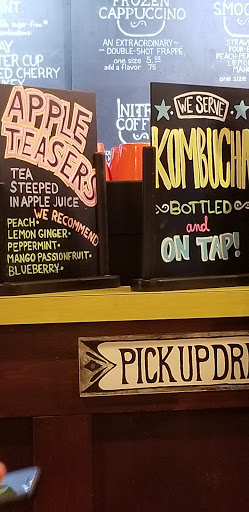 FROZEN
CAPPUCCINO
AN EXTRAORDINARY~
~ DOUBLE-SHOT FRAPPE,
one size 5.55
add a flavor .75
SMOO
TER CUP
ED CHERRY
KE!
NITR
COFF
APPLE
TEASERS
TEA
STEEPED
IN APPLE JUICE
WE RECOMMEND
PEACH•
LEMON GINGER•
PEPPERMINT•
MANGO PASSIONFRUIT•
BLUEBERRY•
WE SERVE
KOMBUCH
BOTTLED
and
ON TAP!
PICK UP DR